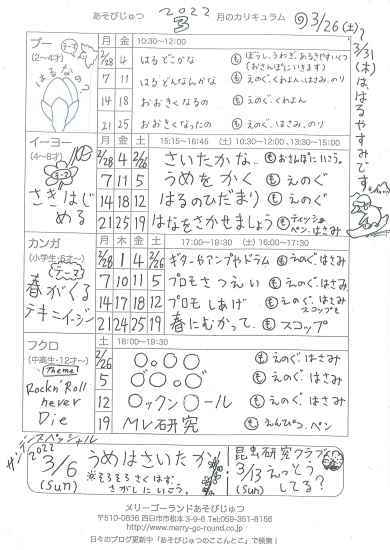 あそびじゅつ 2022 3 月のカリキュラム
◎3/26(土)~3/31(木)は、はるやすみです。
プー (2~4才) はるなの?
月 金 10:30~12:00
2/28 4 はるどこかな も ぼうし、うわぎ、あるきやすいくつ (おさんぽにいきます)
7 11 はるどんなんかな も えのぐ、くれよん、はさみ、のり
14 18 おおきくなるの も えのぐ、くれよん
21 25 おおきくなったの も えのぐ、はさみ、のり
イーヨー (4~6才) さきはじめる
月 金 土 15:15~16:45 (土) 10:30~12:00、13:30~15:00
2/28 4 2/26 さいたかな、も おさんぽにいこう。
7 11 5 うめをかく も えのぐ
14 18 12 はるのひだまり も えのぐ
21 25 19 はなをさかせましょう も ティッシュ ペン、はさみ
カンガ (小学生・6才~) テーマ 春がくる テキニイージー
月 木 金 土 17:00~18:30 (土) 16:00~17:30
2/28 1 4 2/26 ギターやアンプやドラム も えのぐ、はさみ
7 10 11 5 プロモさつえい も えのぐ、はさみ
14 17 18 12 プロモしあげ も えのぐ、はさみ スコップも
21 24 25 19 春にむかって、も スコップ
フクロ (中高生・12才~) Theme Rock'n'Roll never Die
土 18:00~19:30
2/26 ○。○○ も えのぐ、はさみ
5 ○○゛○○ も えのぐ、はさみ
12 ○ックン○ール も えのぐ、はさみ
19 MV研究 も えんぴつ、ペン
サンデースペッシャル
2022 3/6 (sun) うめはさいたか
※そろそろさくはず、さがしにいこう。
昆虫研究クラブ
3/13 (sun) えっとうしてる?
メリーゴーランドあそびじゅつ
〒510-0836 四日市市松本3-9-6 Tel.059-351-8156
http://www.merry-go-round.co.jp
日々のブログ更新中「あそびじゅつのここんとこ」で検索!